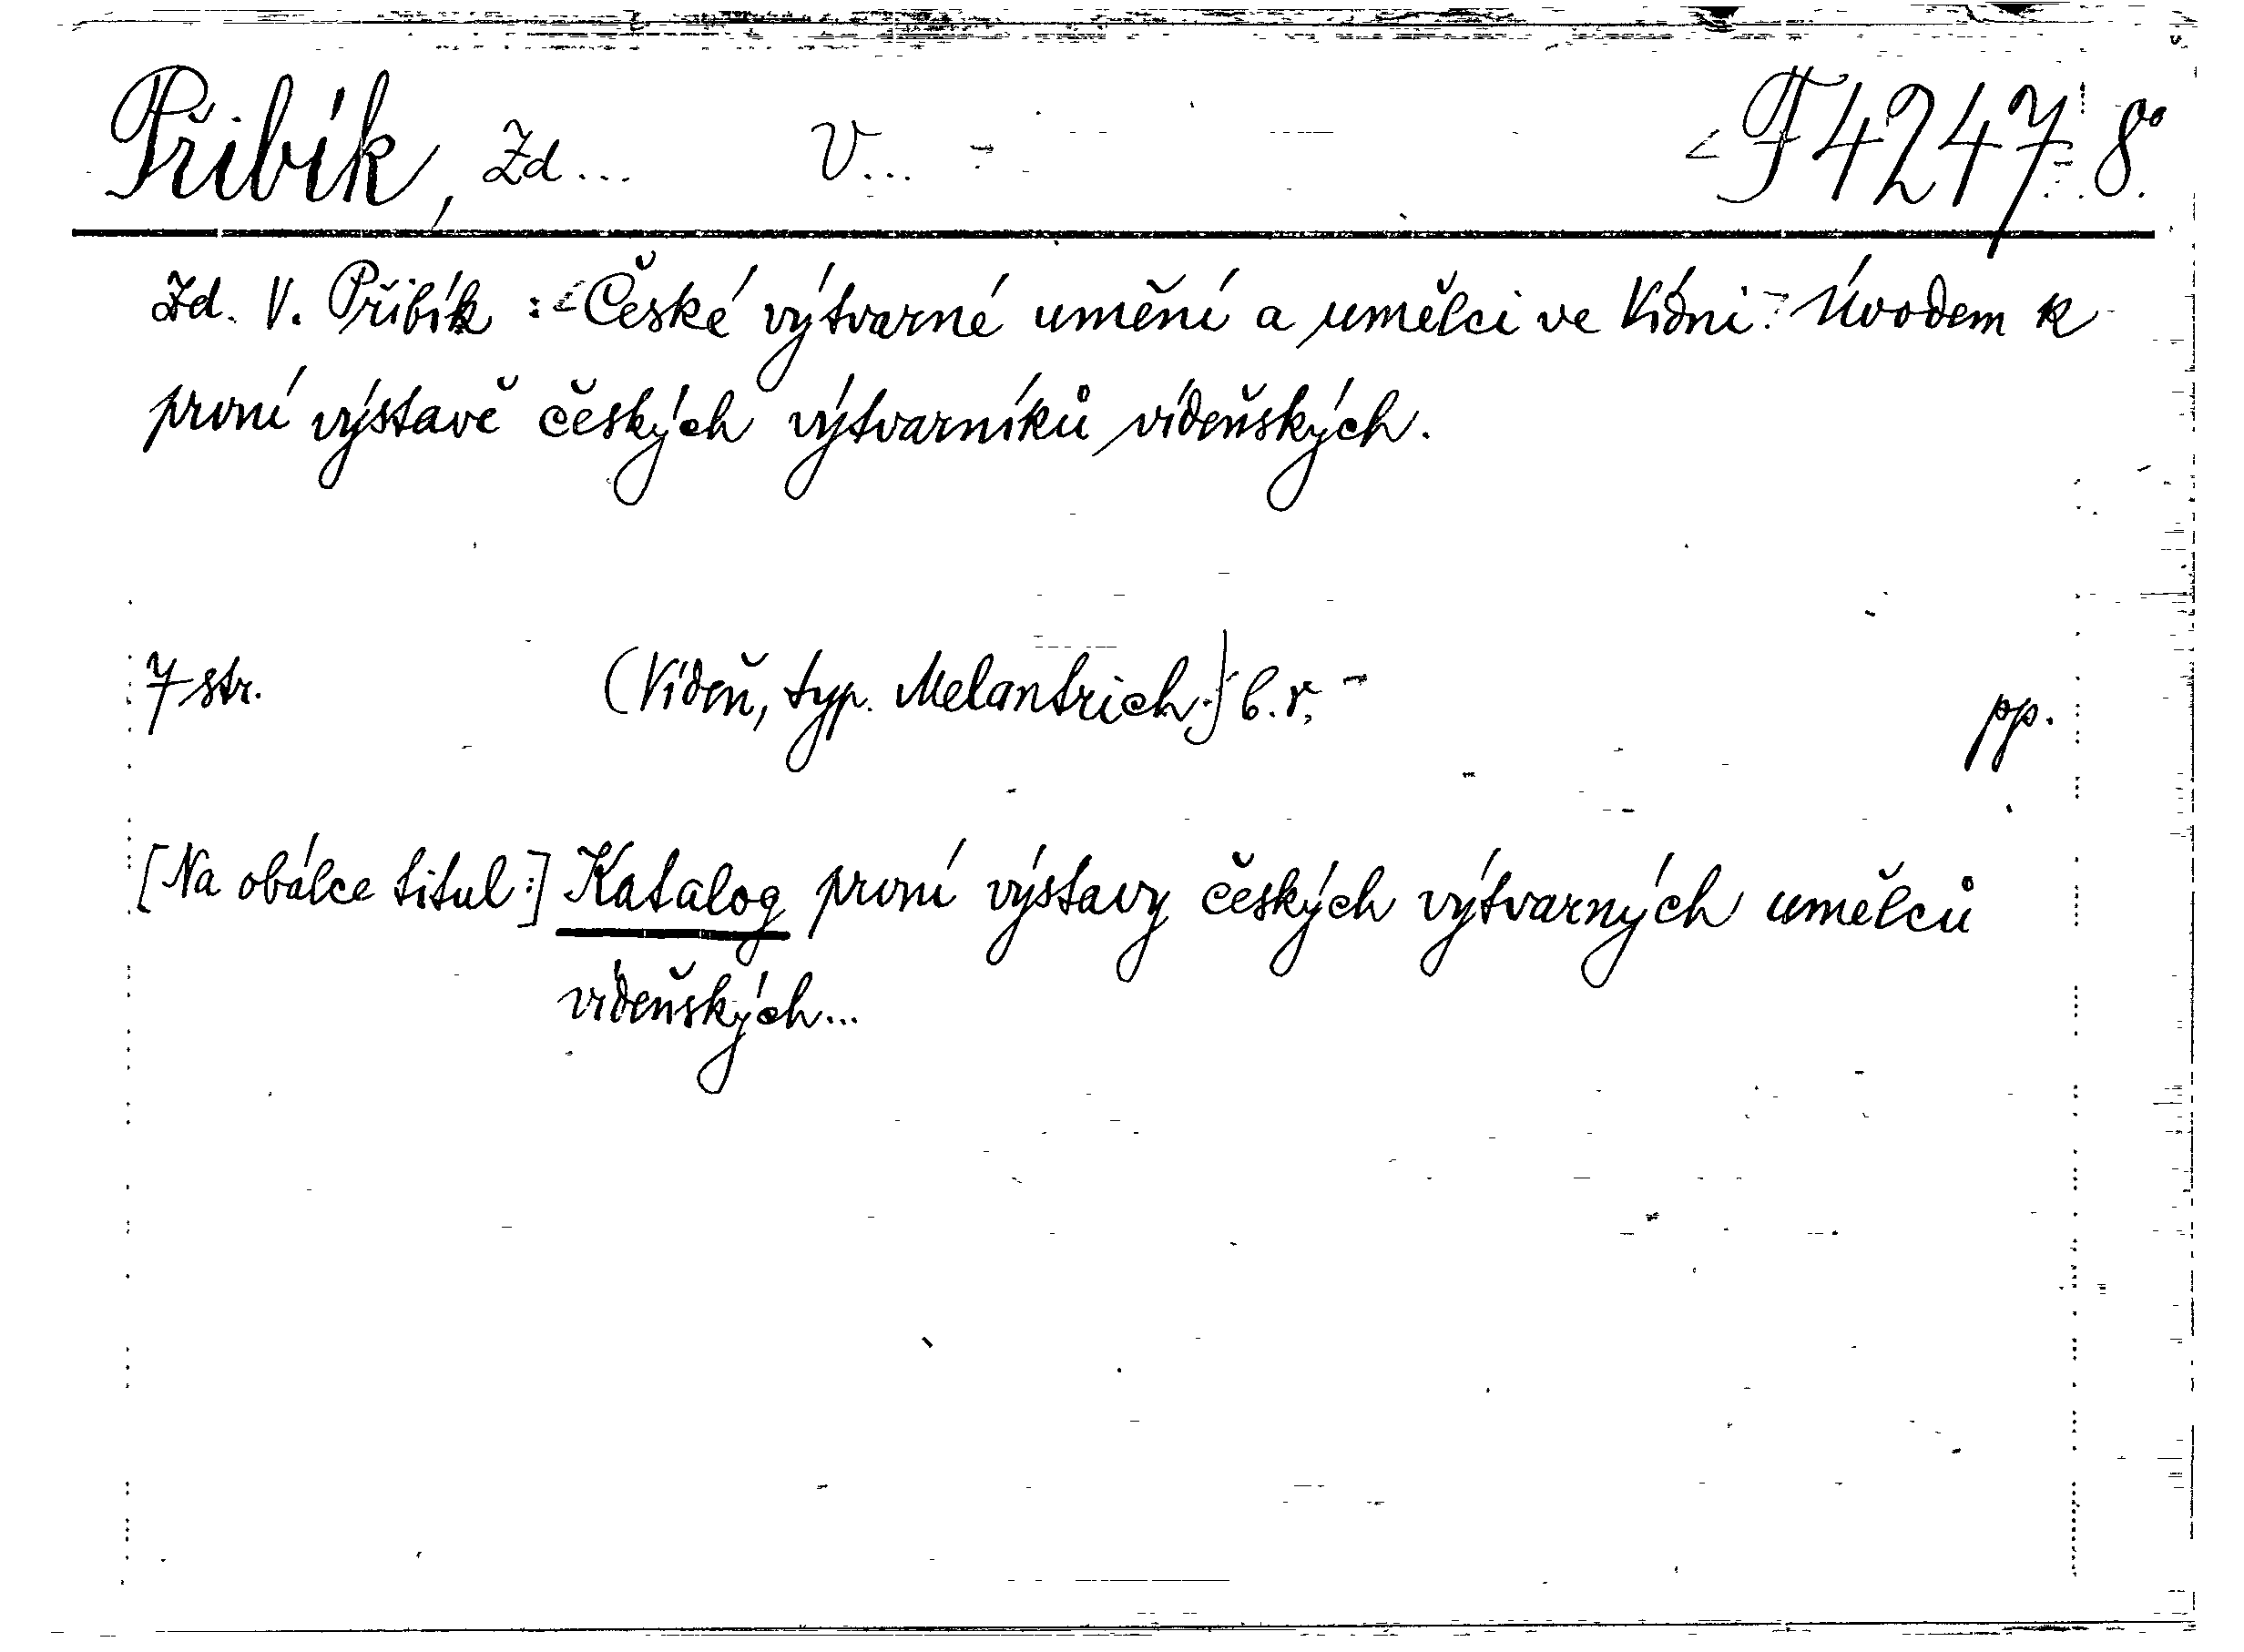 Přibík, Zd... V... F 4247 8°.
Zd. V. Přibík: České výtvarné umění a umělci ve Vídni. Úvodem k
první výstavě českých výtvarníků vídeňských.
7 str. (Vídeň, typ. Melantrich.) b.r. pp.
[Na obálce titul:] Katalog první výstavy českých výtvarných umělců
vídeňských...